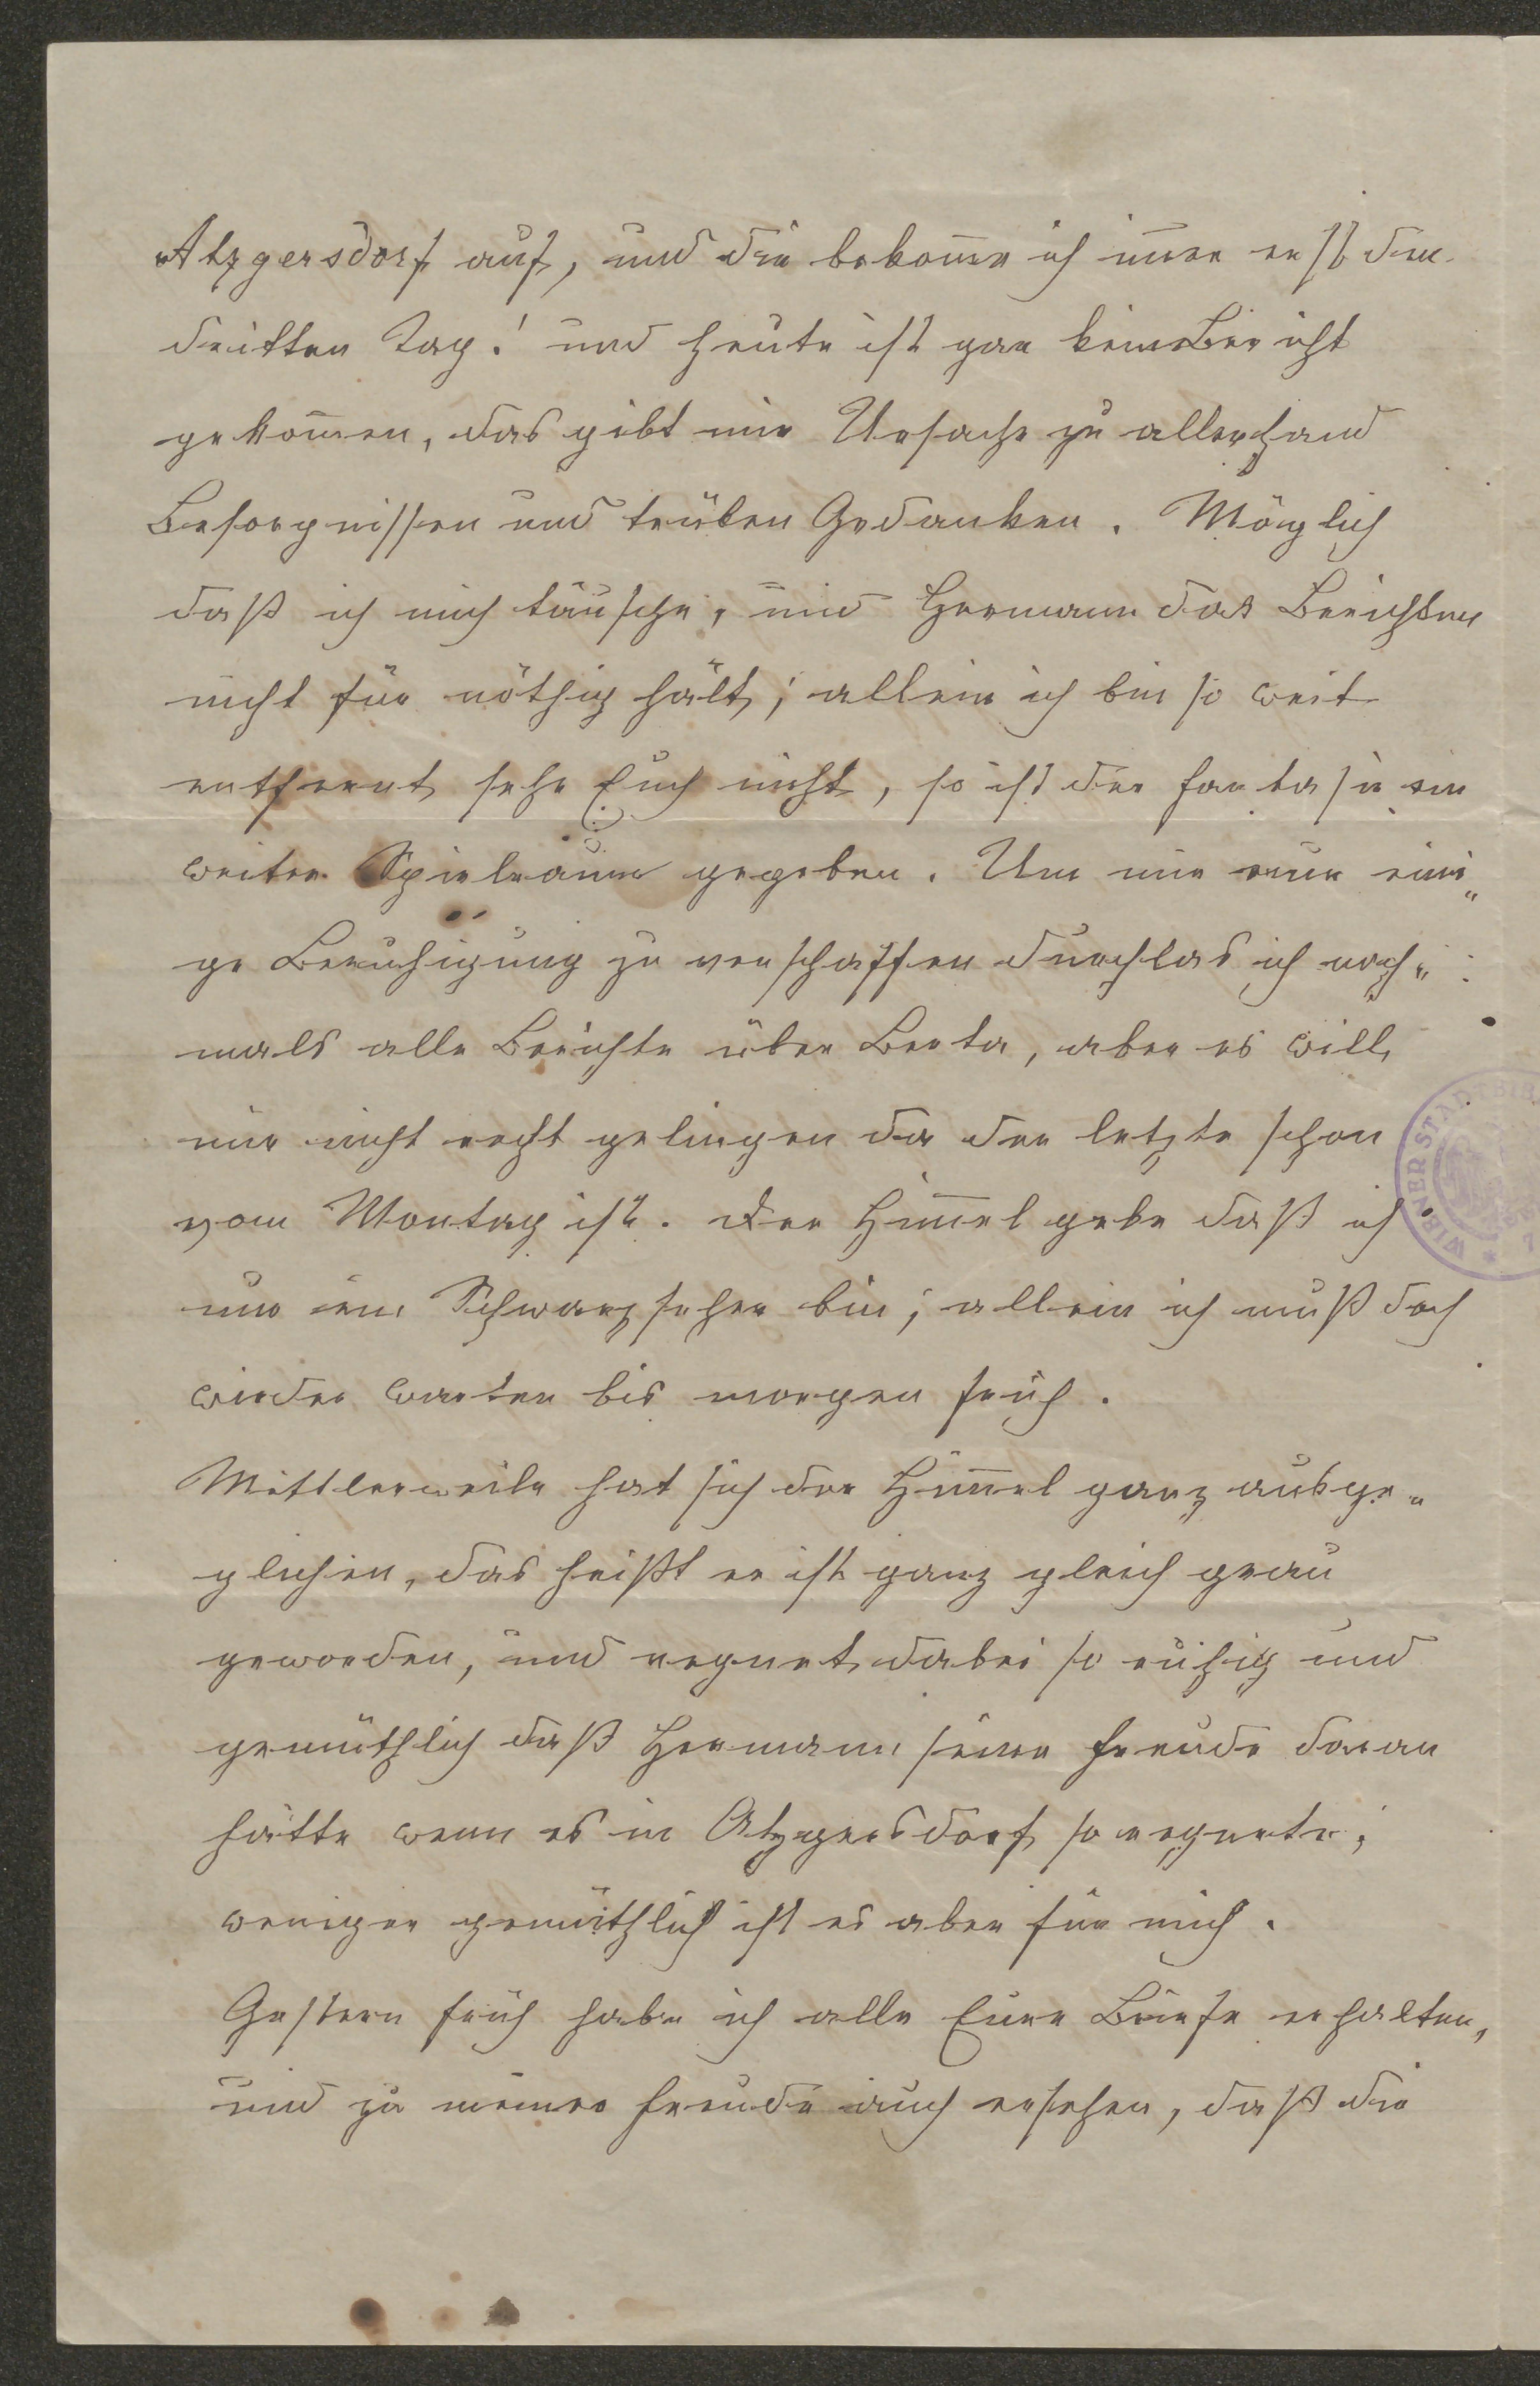 Atzgersdorf auf, und die bekom̅e ich im̅er erst den
dritten Tag! und heute ist gar kein Bericht
gekom̅en, das gibt mir Ursache zu allerhand
Besorgnissen und trüben Gedanken. Möglich
daß ich mich täusche, und Hermann das Berichten
nicht für nöthig hält; allein ich bin so weit
entfernt, sehe Euch nicht, so ist der Fantasie ein
weiter Spielraum gegeben. Um mir nur eini„
ge Beruhigung zu verschaffen durchlas ich noch„
mals alle Berichte über Berta, aber es will
mir nicht recht gelingen da der letzte schon
vom Montag ist. Der Him̅el gebe daß ich
nur ein Schwarzseher bin; allein ich muß doch
wieder warten bis morgen früh.
Mittlerweile hat sich der Him̅el ganz ausge„
glichen, das heißt er ist ganz gleich grau
geworden, und regnet dabei so ruhig und
gemüthlich daß Hermann seine Freude daran
hätte wenn es in Atzgersdorf so regnete;
weniger gemüthlich ist es aber für mich.
Gestern früh habe ich alle Eure Briefe erhalten,
und zu meiner Freude auch ersehen, daß die
WIENER STADTBIB